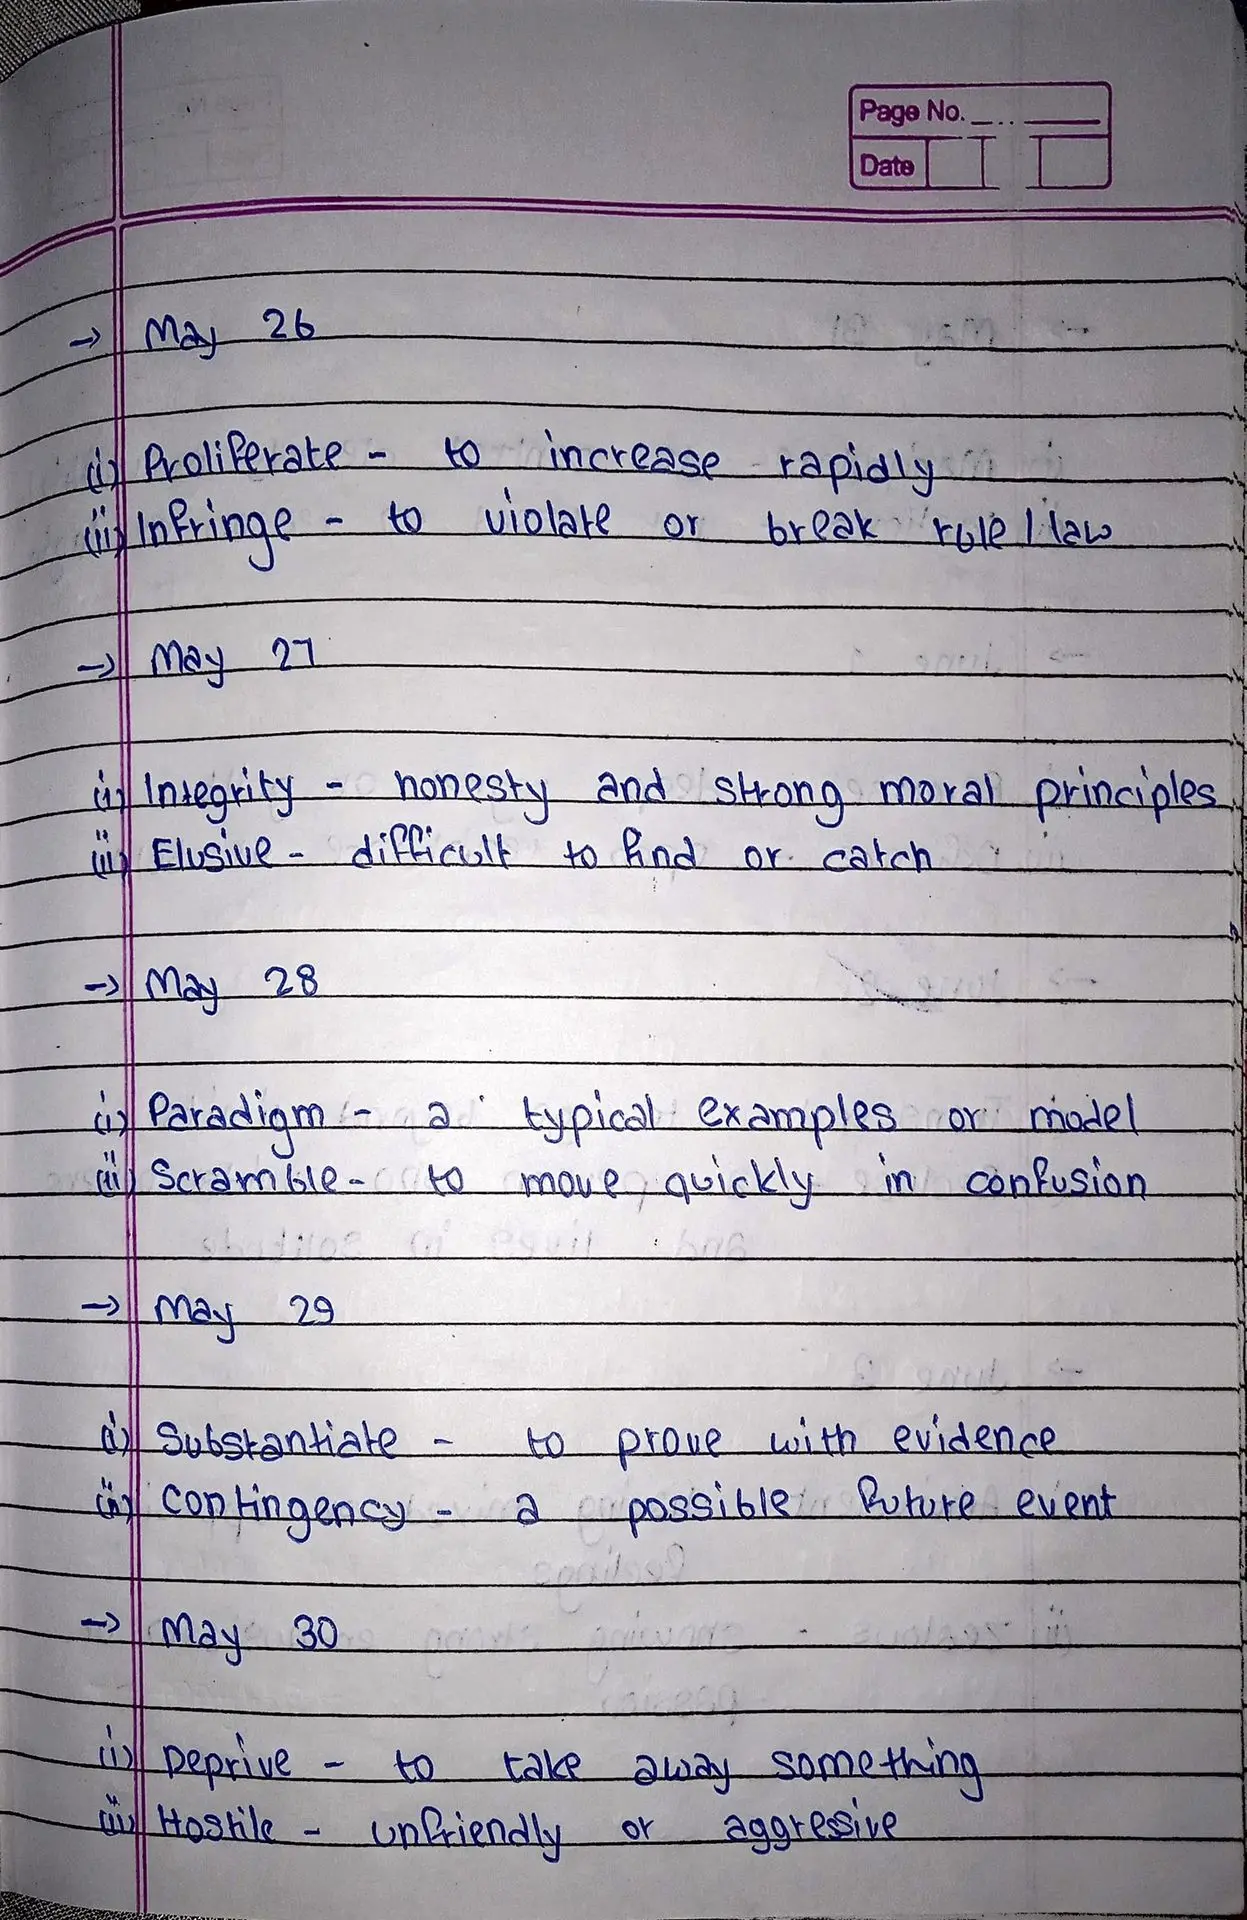 Page No.
Date
→ May 26
(i) Proliferate - to increase rapidly
(ii) Infringe - to violate or break rule / law
→ May 27
(i) Integrity - honesty and strong moral principles
(ii) Elusive - difficult to find or catch
→ May 28
(i) Paradigm - a typical examples or model
(ii) Scramble - to move quickly in confusion
→ May 29
(i) Substantiate - to prove with evidence
(ii) Contingency - a possible future event
→ May 30
(i) Deprive - to take away something
(ii) Hostile - unfriendly or aggressive